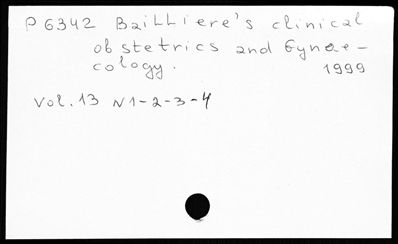 P 6342 BaiLLiere's clinical
obstetrics and Gynae-
cology. 1999
Vol. 13 N 1-2-3-4